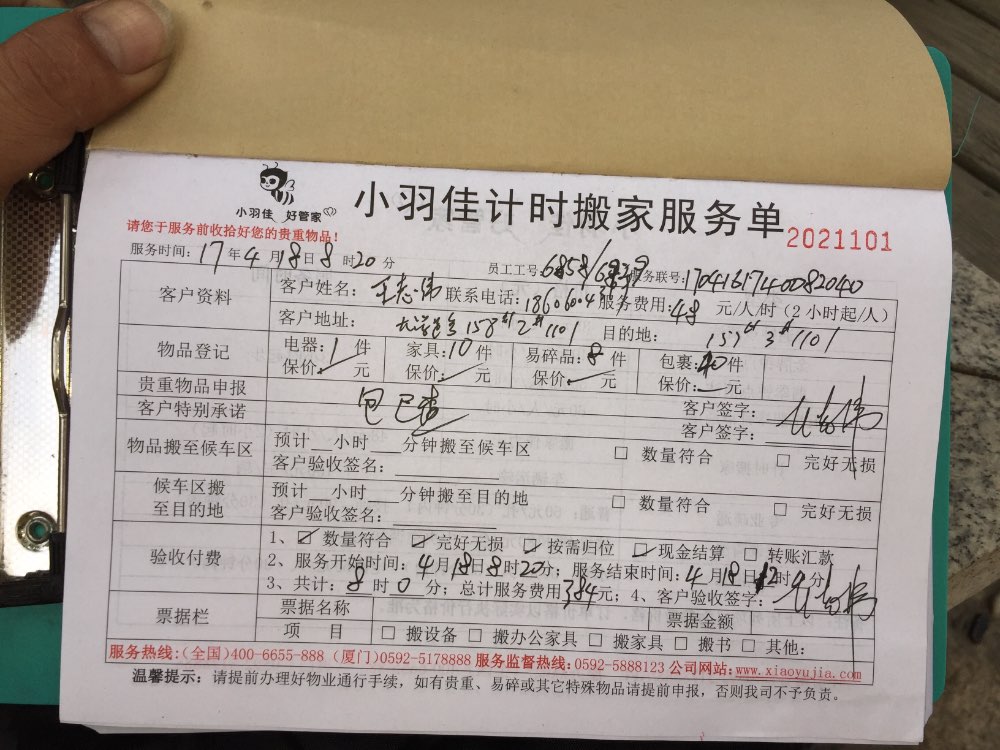 小羽佳 好管家
小羽佳计时搬家服务单
2021101
请您于服务前收拾好您的贵重物品!
服务时间: 17 年 4 月 18 日 8 时 20 分 员工工号: 6858/ 服务联号: 1704161740082040
客户资料
客户姓名: 王志伟 联系电话: 服务费用: 48 元/人/时 (2小时起/人)
客户地址: 158# 2# 1101 目的地: 157# 3# 1101
物品登记
电器: 1 件 家具: 10 件 易碎品: 8 件 包裹: 40 件
保价: 元 保价: 元 保价: 元 保价: 元
贵重物品申报
客户签字:
客户特别承诺
客户签字:
物品搬至候车区
预计 小时 分钟搬至候车区 □ 数量符合 □ 完好无损
客户验收签名:
候车区搬至目的地
预计 小时 分钟搬至目的地 □ 数量符合 □ 完好无损
客户验收签名:
验收付费
1、☑ 数量符合 ☑ 完好无损 ☑ 按需归位 ☑ 现金结算 □ 转账汇款
2、服务开始时间: 4 月 18 日 8 时 20 分; 服务结束时间: 4 月 18 日 12 时 分
3、共计: 8 时 0 分; 总计服务费用 384 元; 4、客户验收签字:
票据栏
票据名称 票据金额
项 目 □ 搬设备 □ 搬办公家具 □ 搬家具 □ 搬书 □ 其他:
服务热线:(全国)400-6655-888 (厦门)0592-5178888 服务监督热线:0592-5888123 公司网站:www.xiaoyujia.com
温馨提示: 请提前办理好物业通行手续, 如有贵重、易碎或其它特殊物品请提前申报, 否则我司不予负责。